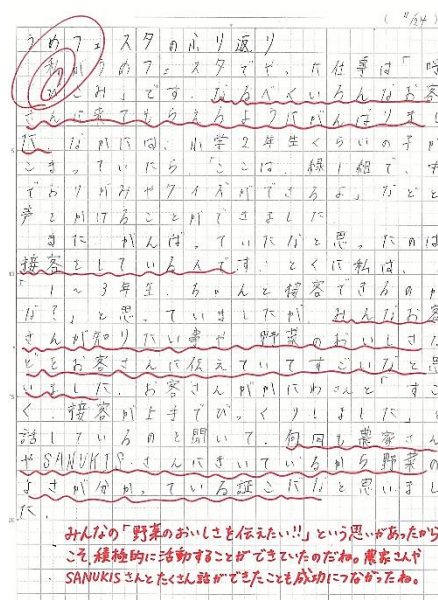 (11/24)
うめフェスタのふり返り
私がうめフェスタでやった仕事は「呼
びこみ」です。なるべくいろんなお客
さんに来てもらえるようにがんばりまし
た。なかには、小学2年生くらいの子が
こまっていたら「ここは、緑1組で、中
でおりがみやクイズができるよ」などと
声をかけることができました。
また、がんばっていたなと思ったのは
接客をしている人です。とくに私は、
「1〜3年生、ちゃんと接客できるのか
な?」と思っていましたが、みんなお客
さんが知りたい事や、野菜のおいしさな
どをお客さんに伝えていてすごいなと思
いました。お客さんがかにわさんと「すご
く、接客が上手でびっくりしました」
話しているのを聞いて、何回も農家さん
やSANUKISさんにきいているから野菜の
よさが分かっている証こだなと思いまし
た。
みんなの「野菜のおいしさを伝えたい!!」という思いがあったから
こそ、積極的に活動することができていたのだね。農家さんや
SANUKISさんとたくさん話ができたことも成功につながったね。